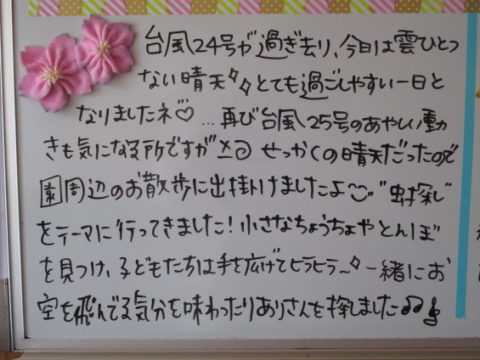 台風24号が過ぎ去り、今日は雲ひとつ
ない晴天♪とても過ごしやすい一日と
なりましたネ♡…再び台風25号のあやしい動
きも気になる所ですが せっかくの晴天だったので
園周辺のお散歩に出掛けましたよ "虫探し"
をテーマに行ってきました!小さなちょうちょやとんぼ
を見つけ、子どもたちは手を広げてヒラヒラ〜♪一緒にお
空を飛んでる気分を味わったりありさんを探しました♫